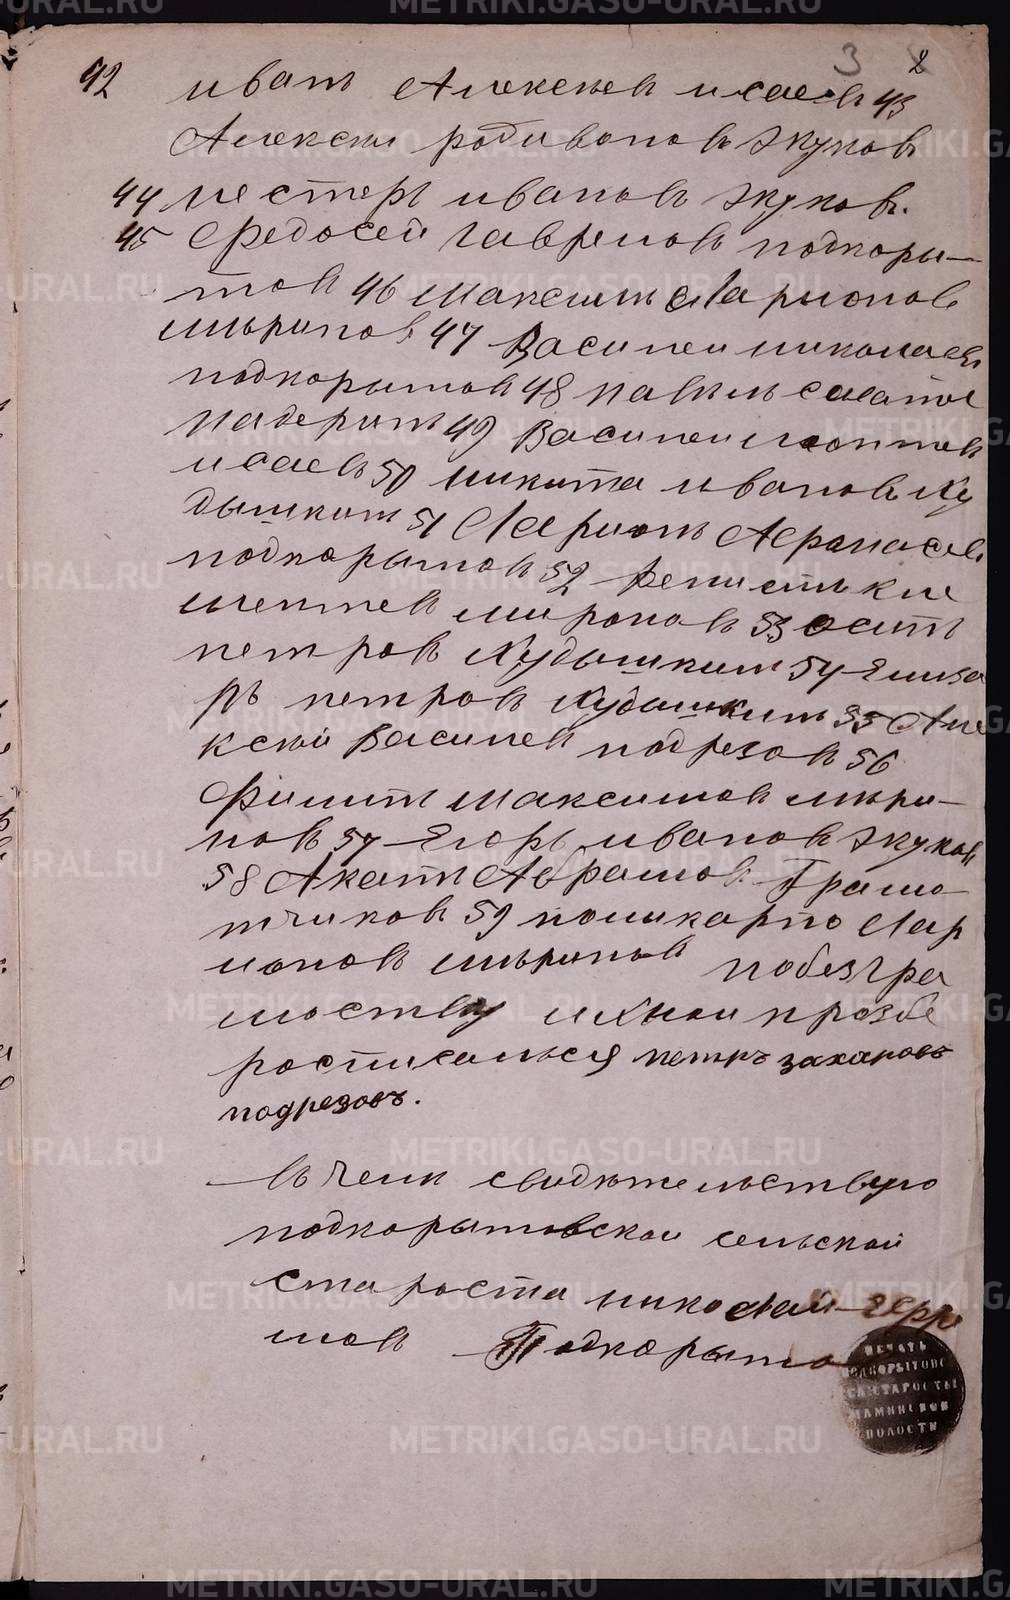 3 2
42 иванъ Алексеев исаевъ 43
Алексеи родивоновъ жуков
44 нестеръ ивановъ жуковъ.
45 Федосей гаврилов подкоры-
тов 46 Максимъ Ларионов
мыринов 47 Василеи николаевъ
подкорытов 48 павилъ
падерин 49 Василеи
исаевъ 50 никита иванов Ку
дышкин 51 Ларионъ Афонасев
подкорытов 52 кли
ментев миронов 53 осип
петров Кудышкин 54 Елиза
ръ петров Кудышкинъ 55 Але
ксей Василев подрезов 56
Филип Максимов мыри-
нов 57 Егоръ иванов жуков
58 Абрамов Грамо
тчиков 59 поликарпо Лар
ионов мыринов побезгра
моству ихнои прозбе
росписалься петръ захаровъ
подрезовъ.
въ чем свидетельствую
подкорытовскои сельскои
староста николай Ефи
мов Подкорыто
ПЕЧАТЬ
ПОДКОРЫТОВС
СЕЛ СТАРОСТЫ
КАМИНСКОЙ
ВОЛОСТИ
METRIKI.GASO-URAL.RU